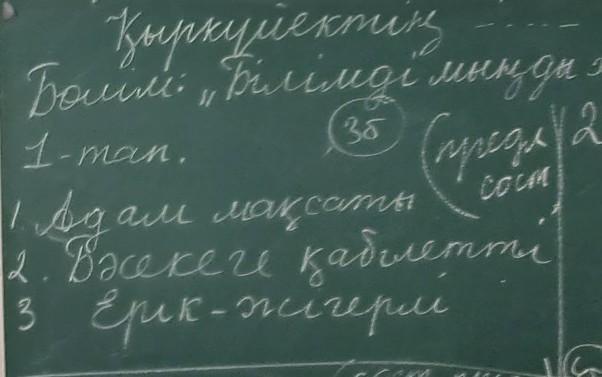 Қыркүйектің -----
Бөлім: „Білімді мыңды
1-тап. 3б (предл 2
сост
1. Адам мақсаты
2. Бәсекеге қабілетті
3 Ерік-жігерлі